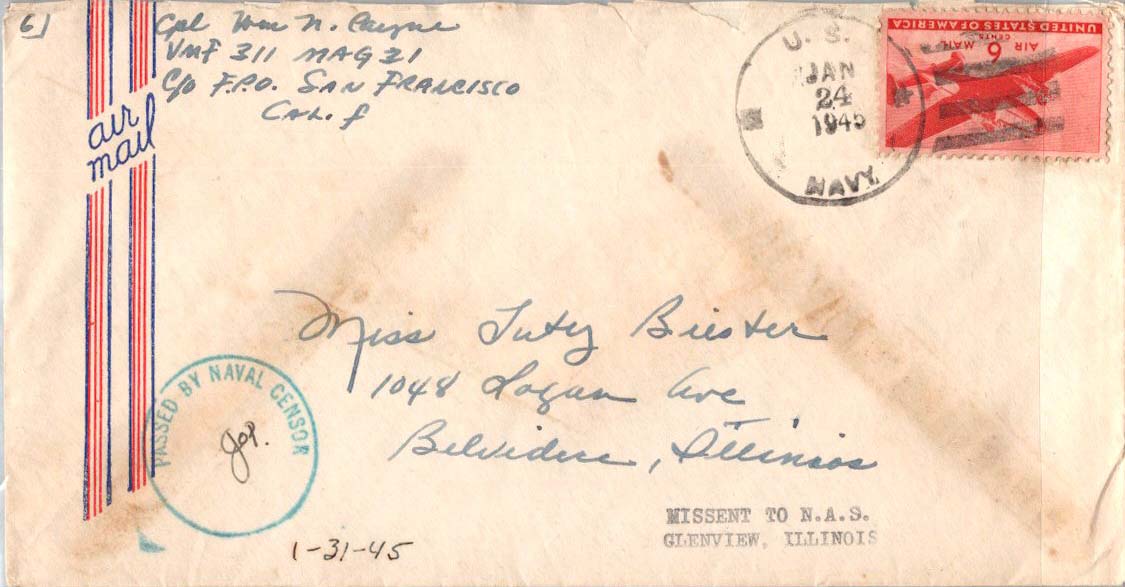 6]
Cpl Wm N. Payne
VMF 311 MAG 31
C/o F.P.O. San Francisco
Cal. f
air
mail
U. S.
JAN
24
1945
NAVY
UNITED STATES OF AMERICA
AIR MAIL
6
CENTS
Miss Tutey Biester
1048 Logan Ave
Belvidere, Illinois
PASSED BY NAVAL CENSOR
MISSENT TO N.A.S.
GLENVIEW, ILLINOIS
1-31-45